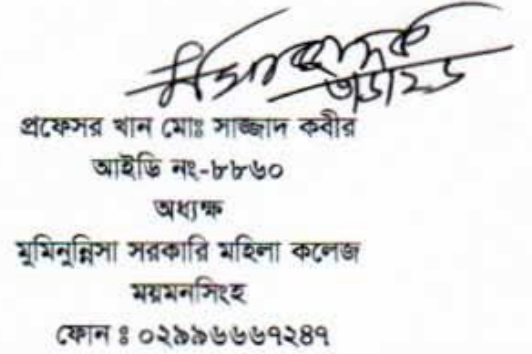 প্রফেসর খান মোঃ সাজ্জাদ কবীর
আইডি নং-৮৮৬০
অধ্যক্ষ
মুমিনুন্নিসা সরকারি মহিলা কলেজ
ময়মনসিংহ
ফোন ঃ ০২৯৯৬৬৬৭২৪৭